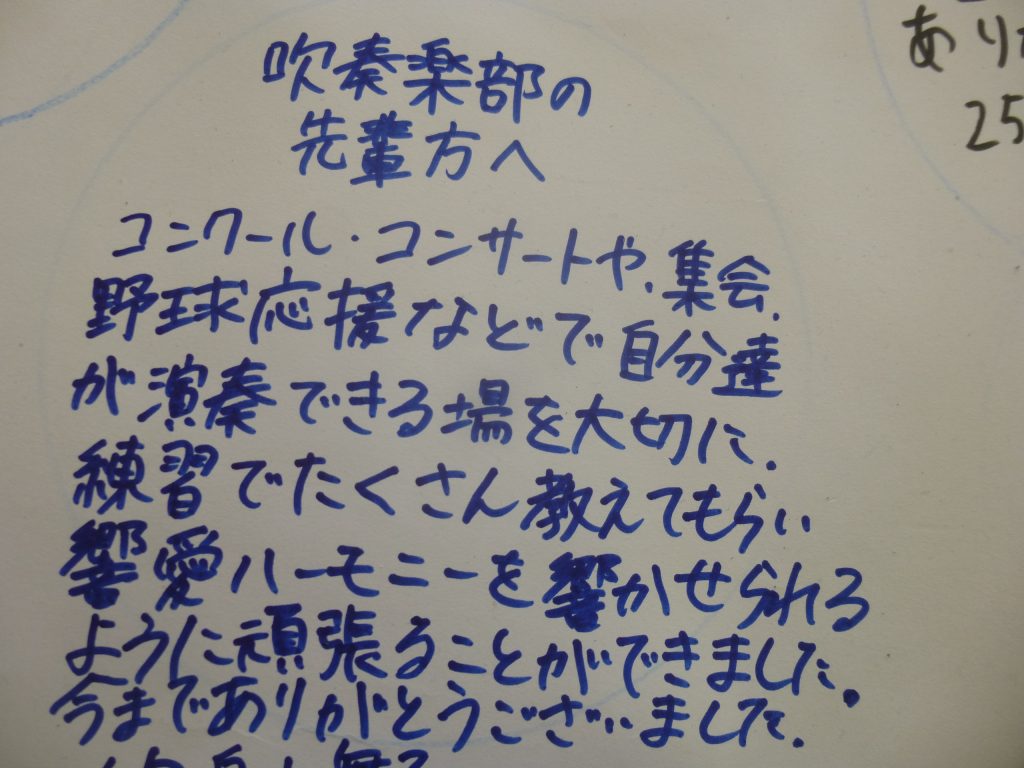 吹奏楽部の
先輩方へ
コンクール・コンサートや、集会、
野球応援などで自分達
が演奏できる場を大切に、
練習でたくさん教えてもらい
響愛ハーモニーを響かせられる
ように頑張ることができました。
今までありがとうございました。
あり
25